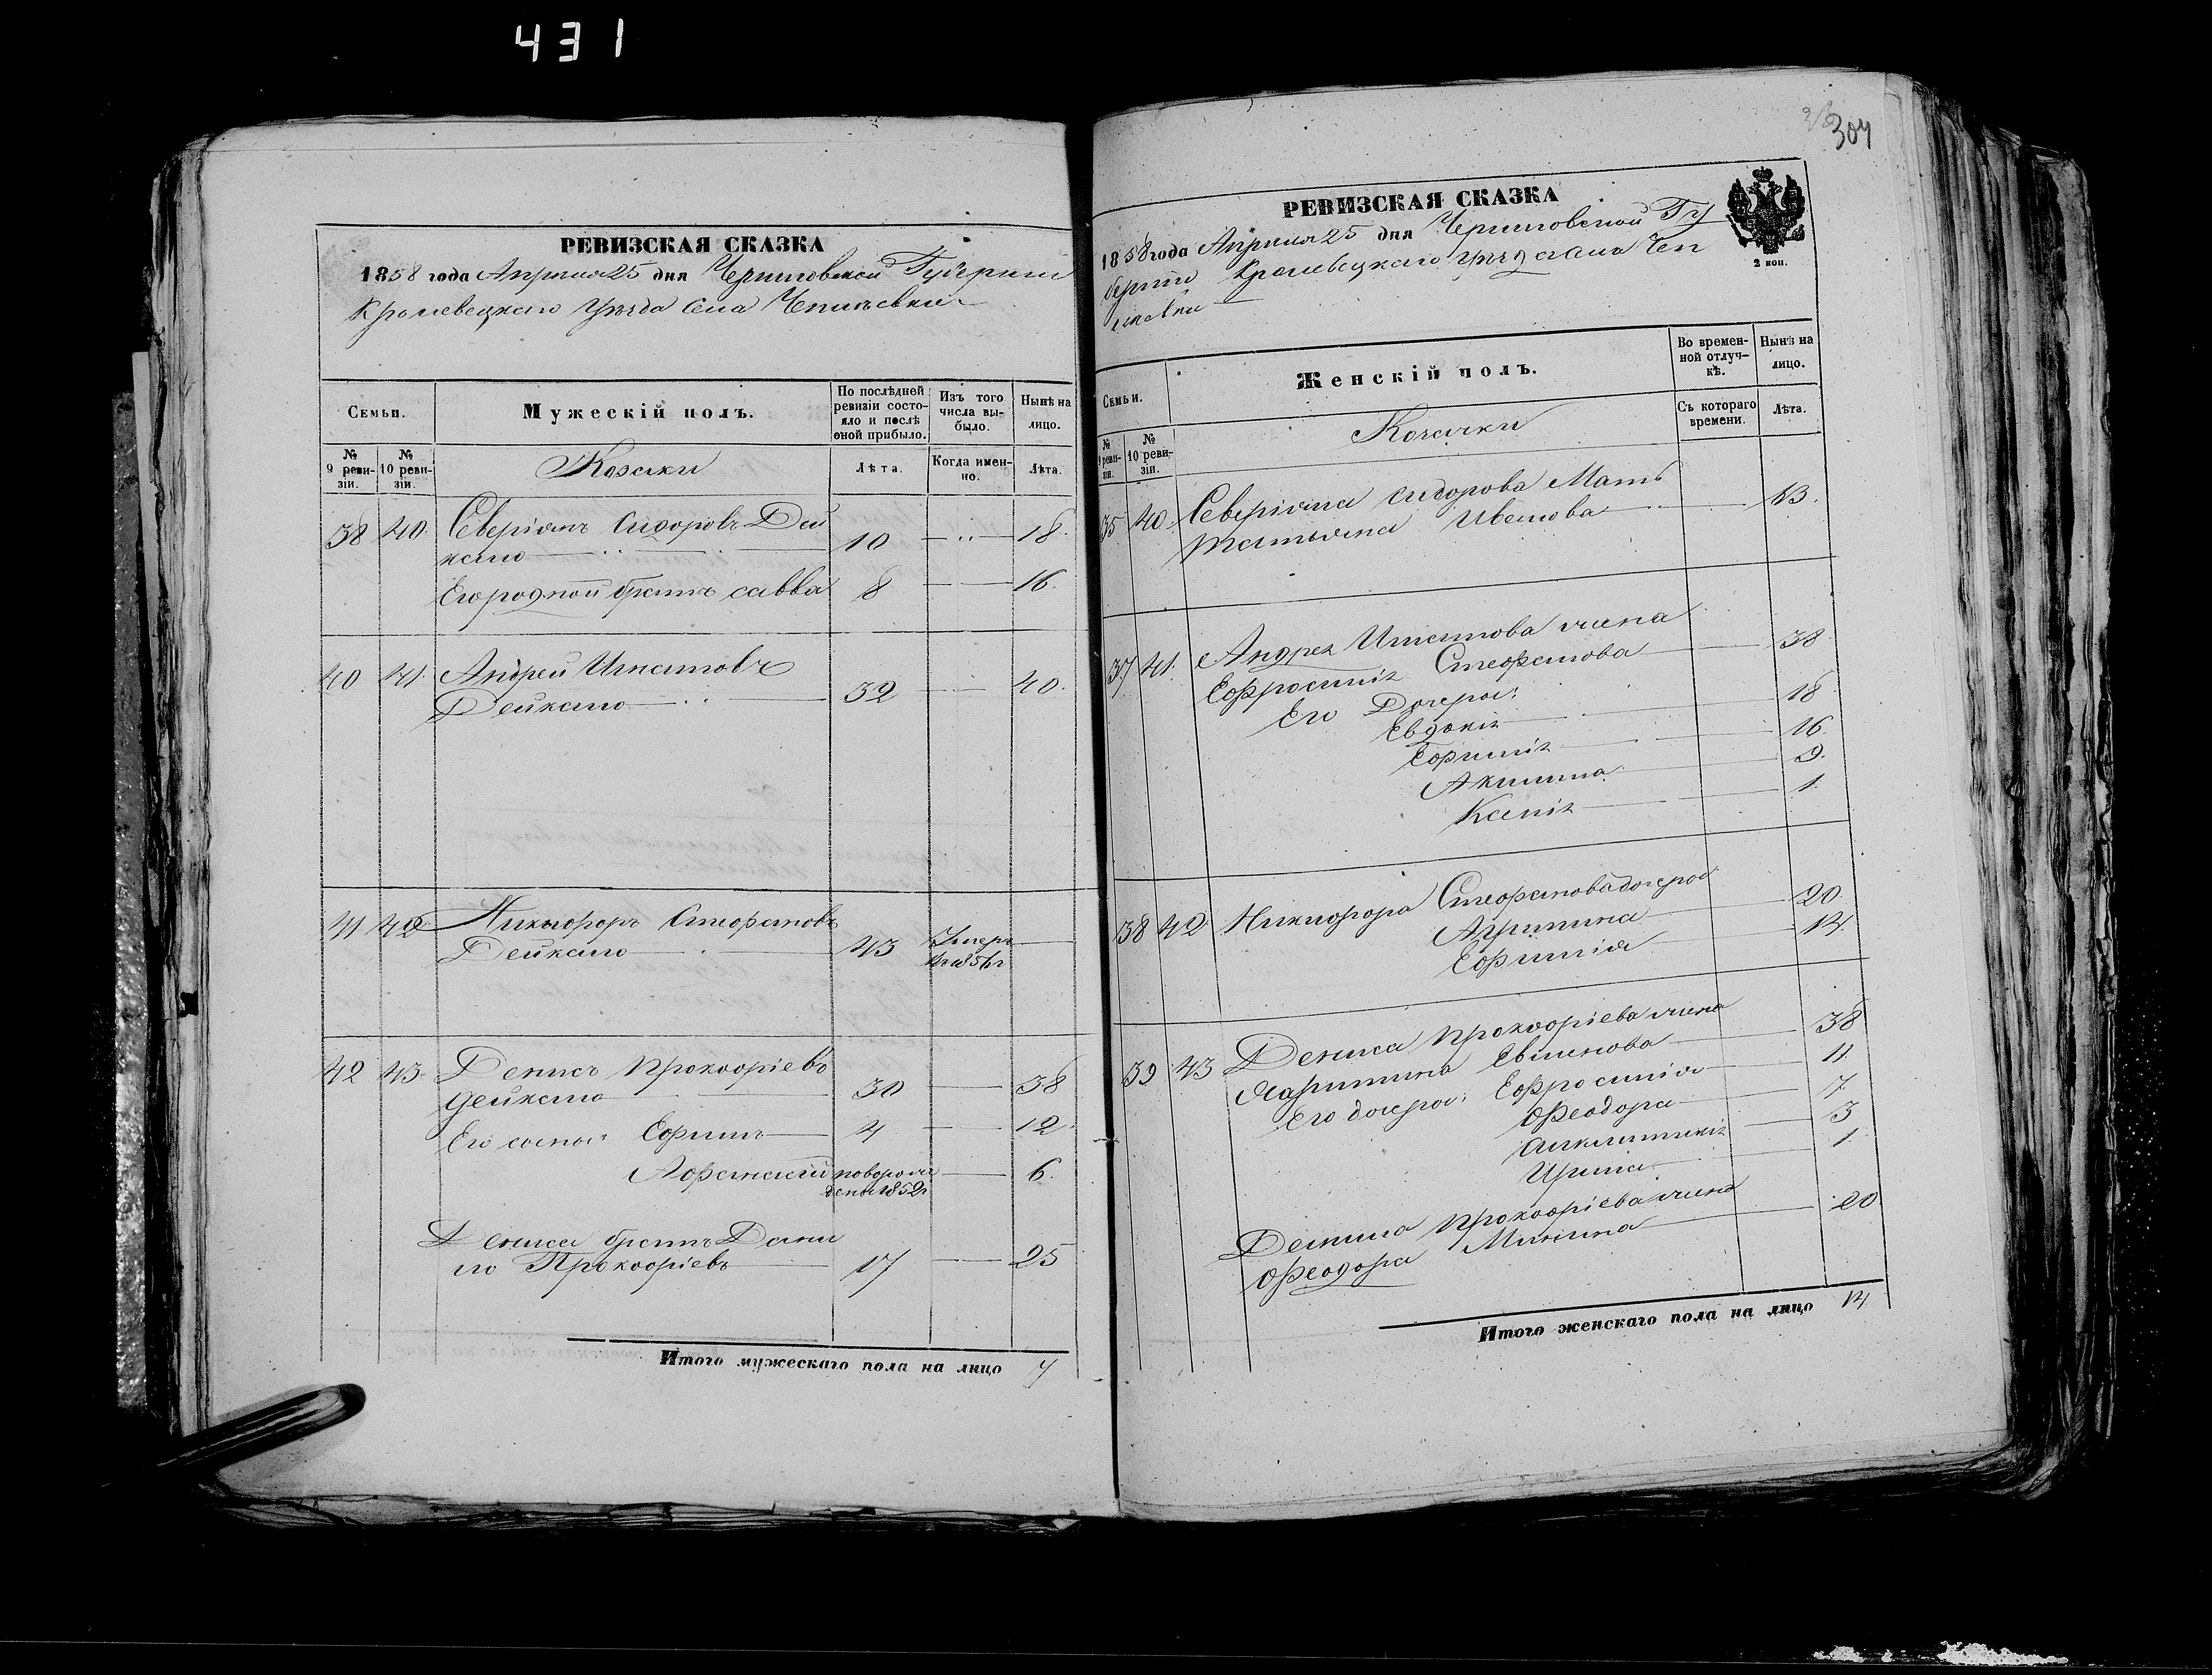 431
РЕВИЗСКАЯ СКАЗКА
1858 года Апреля 25 дня Черниговской Губернии
Кролевецкаго уѣзда села Чепліевки
Семьи.
Мужескій полъ.
По послѣдней ревизіи состояло и послѣ оной прибыло.
Изъ того числа выбыло.
Нынѣ на лицо.
№ 9 ревизіи.
№ 10 ревизіи.
Козаки
Лѣта.
Когда именно.
Лѣта.
38 40 Северіянъ Сидоровъ Дей
кало 10 18.
Его родной братъ Савва 8 16.
40 41. Андрей Игнатовъ
Дейкало 32 40.
41 42 Никифоръ Стефановъ
Дейкало 43 Умеръ
въ 1856 г
42 43 Денисъ Прокофіевъ
Дейкало 30 38
Его сыны: Ефимъ 4 12.
Афанасій 6.
1852г
Дениса братъ Дани
ло Прокофіевъ 17 25
Итого мужескаго пола на лицо 7
304
РЕВИЗСКАЯ СКАЗКА
1858 года Апреля 25 дня Черниговской Гу
берніи Кролевецкаго уѣзда села Чеп
ліевки
2 коп.
Семьи.
Женскій полъ.
Во временной отлучкѣ.
Нынѣ на лицо.
№ 9 ревизіи.
№ 10 ревизіи.
Козачки
Съ котораго времени.
Лѣта.
35 40. Северіяна Сидорова Мать
Татьяна Иванова
37 41. Андрея Игнатова жена
Ефросинія Стефанова 38
Его Дочери:
Евдокія 18
Ефимія 16.
Акилина 9.
Ксенія 1.
38 42 Никифора Стефанова дочери
Агрипина 20.
Ефимія 14.
39 43 Дениса Прокофіева жена
Харитина 38
Его дочери: Ефросинія 11.
Феодора 7.
3
Ирина 1.
Данила Прокофіева жена
Феодора Минина 20
Итого женскаго пола на лицо 14